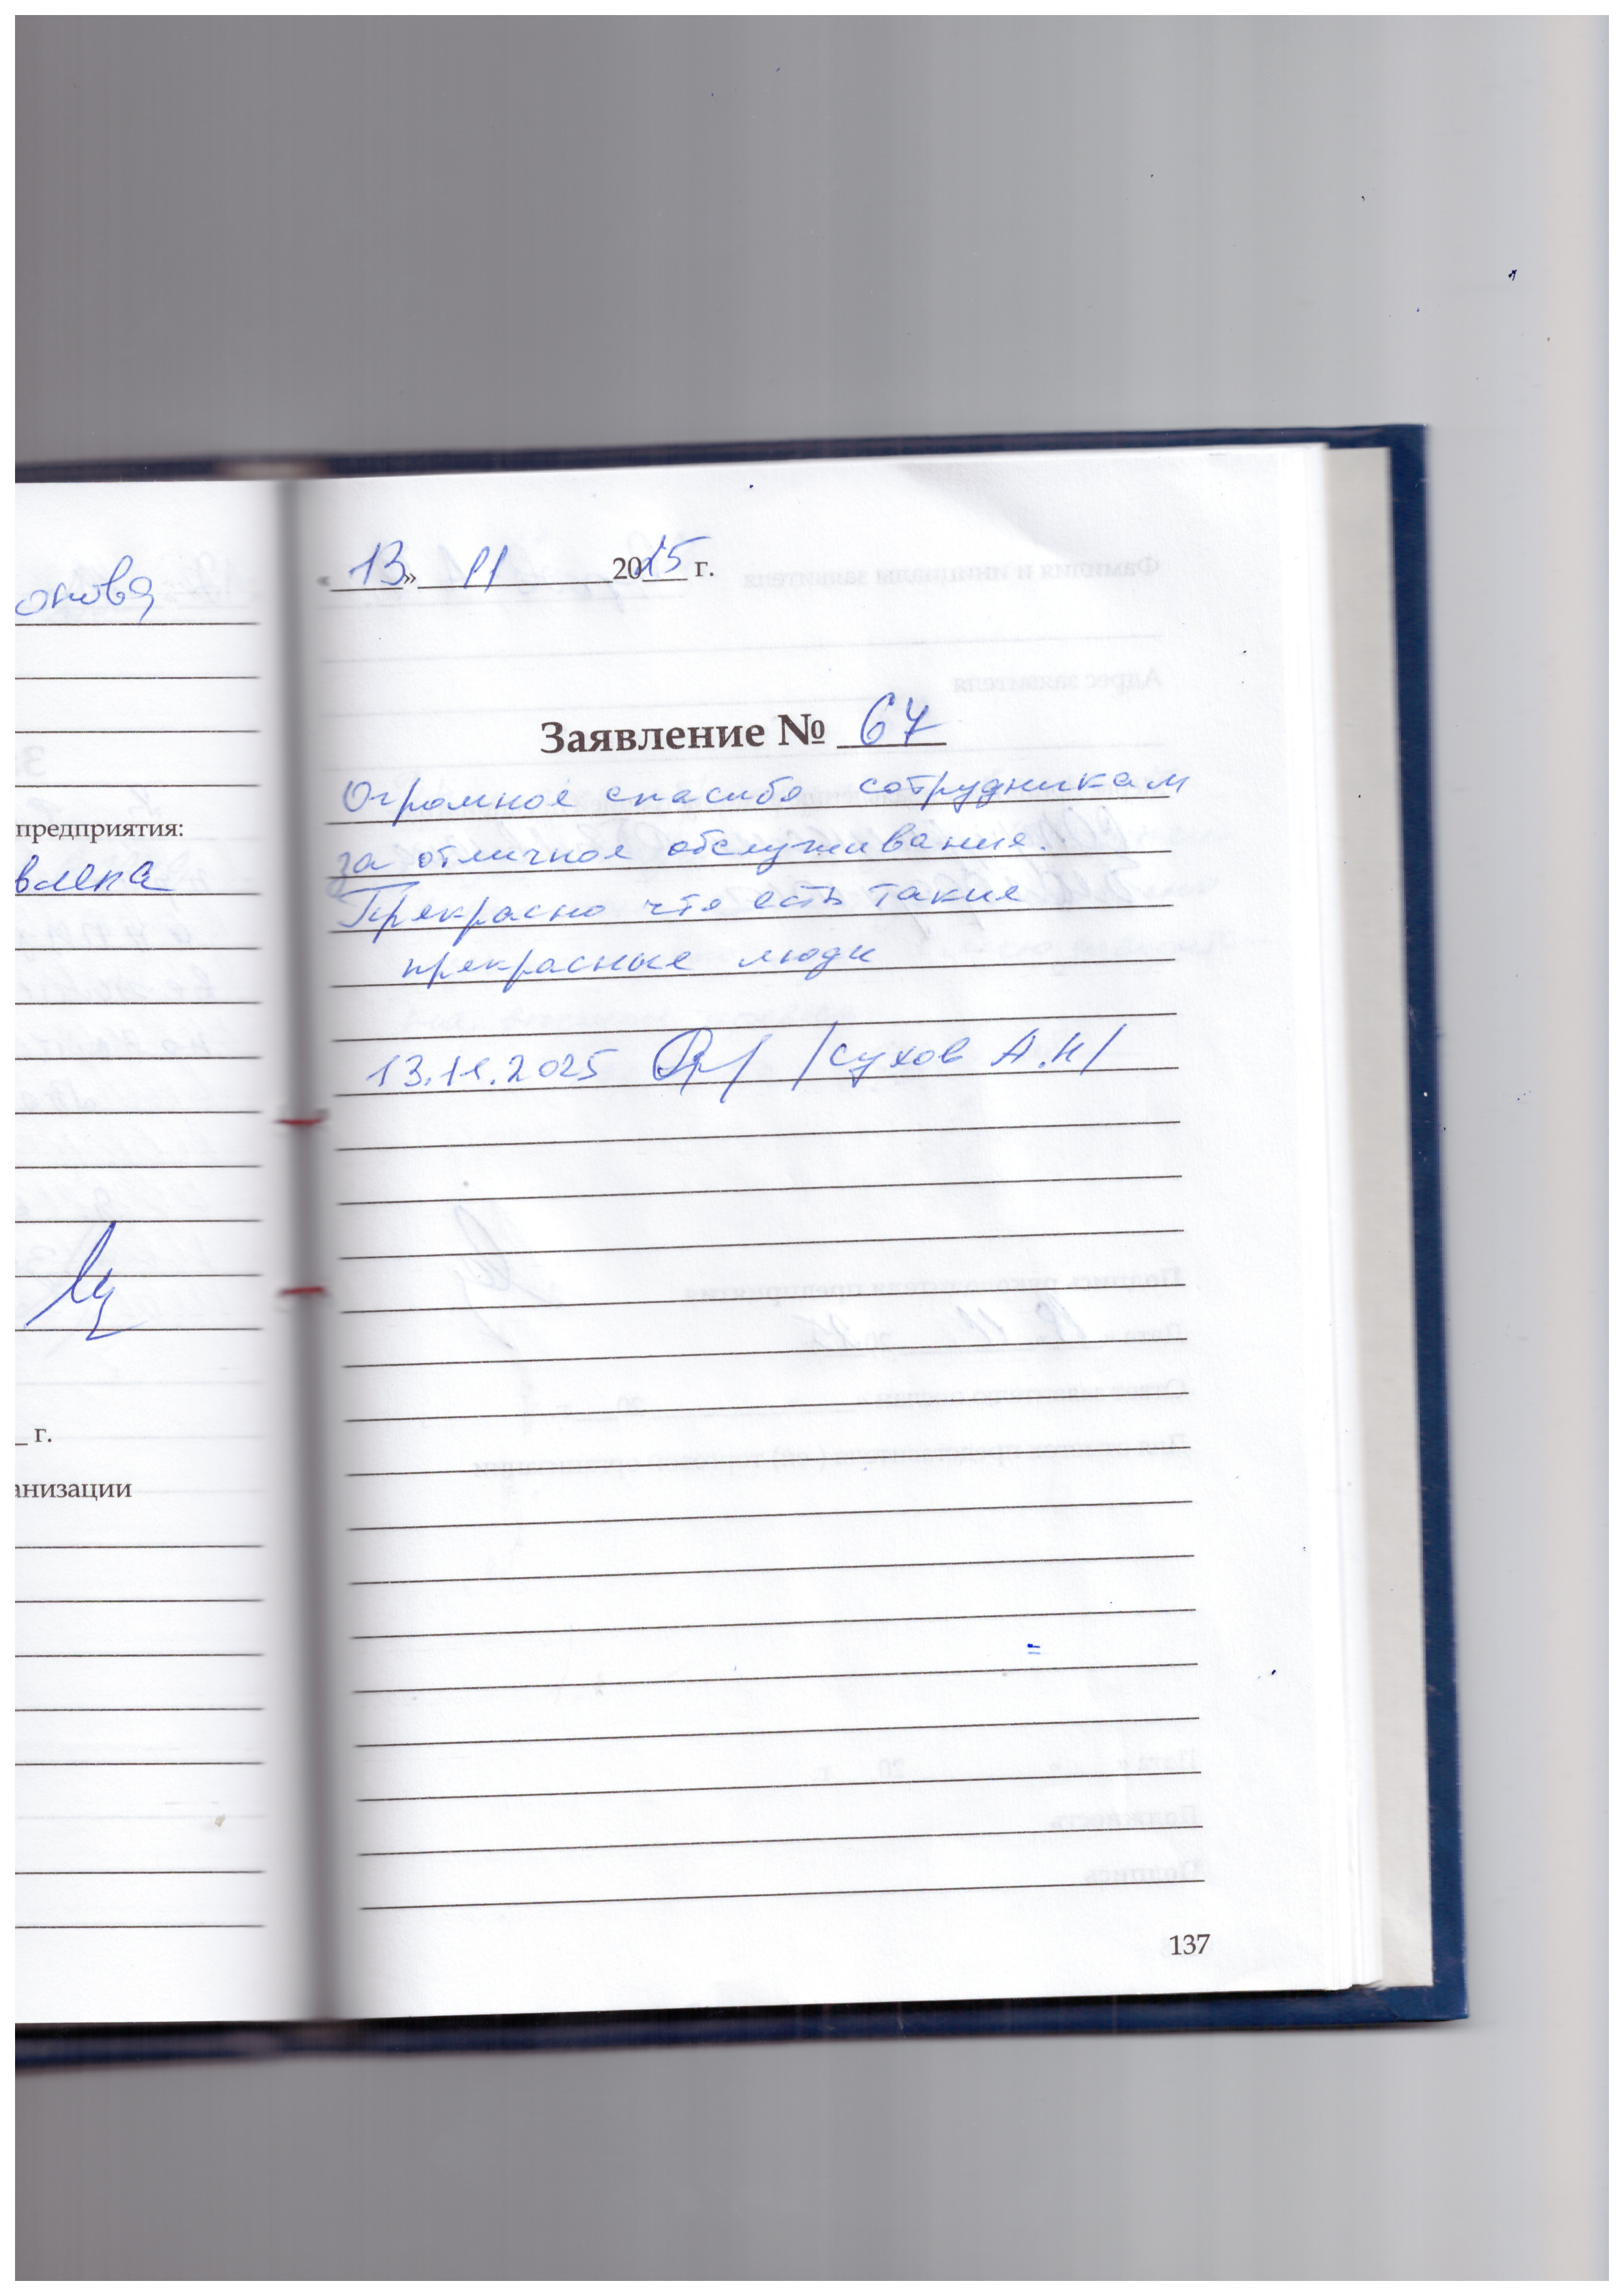 онова
предприятия:
г.
анизации
« 13 » 11 2025 г.
Заявление № 67
Огромное спасибо сотрудникам
за отличное обслуживание.
Прекрасно что есть такие
прекрасные люди
13.11.2025 /Сухов А.Н/
137